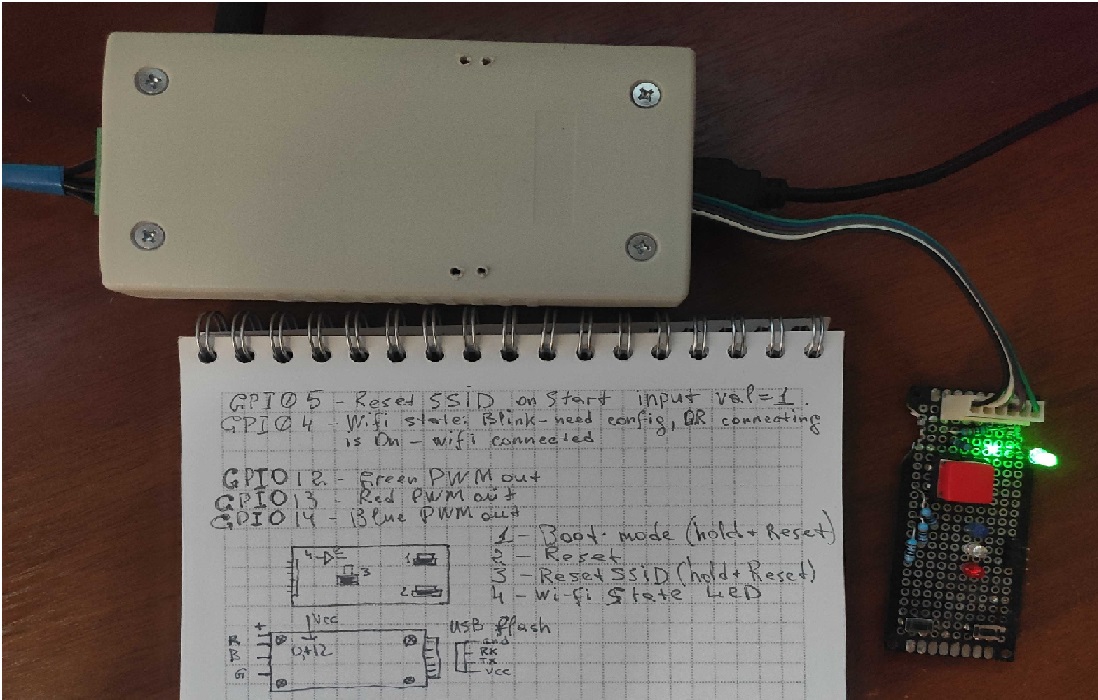 GPIO 5 - Reset SSID on Start input val=1.
GPIO 4 - Wifi state: Blink-need config, OR connecting
is On - wifi connected
GPIO 12 - Green PWM out
GPIO 13 - Red PWM out
GPIO 14 - Blue PWM out
1 - Boot mode (hold + Reset)
2 - Reset
3 - Reset SSID (hold + Reset)
4 - Wi-fi State LED
4
1
3
2
Vcc
USB flash
+
R
B
G
GND
RX
TX
Vcc